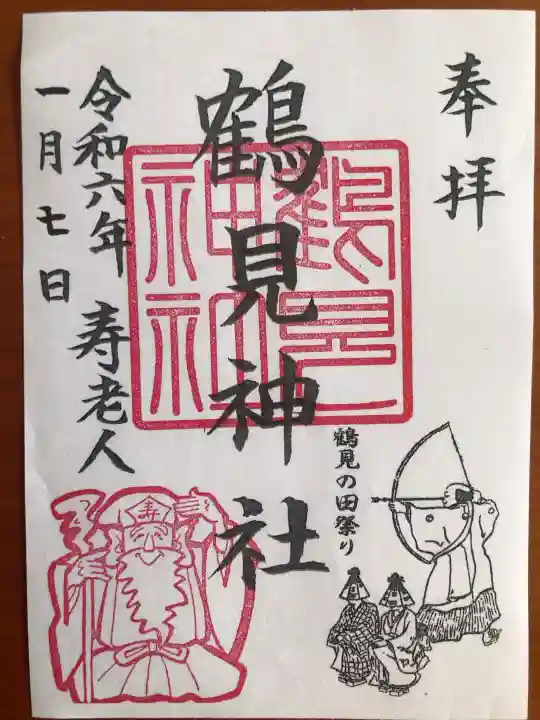 奉拝
鶴見神社
鶴見神社
鶴見の田祭り
寿老人
令和六年
一月七日
寿